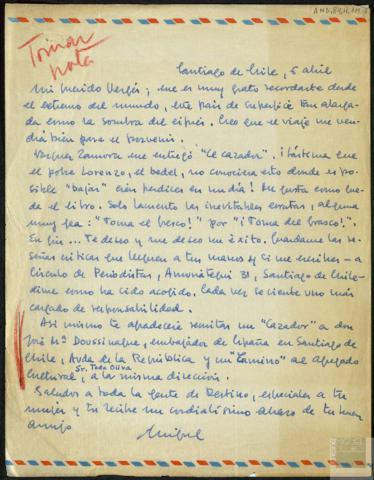 Tomar
nota
Santiago de Chile, 5 abril
Mi querido Vergés; me es muy grato recordarte desde
el extremo del mundo, este país de superficie tan alarga-
da como la sombra del ciprés. Creo que el viaje me ven-
drá bien para el porvenir.
Vázquez Zamora me entregó "El cazador". ¡Lástima que
el pobre Lorenzo, el bedel, no conociera esto donde es po-
sible "bajar" cien perdices en un día! Me gusta como que-
da el libro. Solo lamento las inevitables erratas, alguna
muy fea: "Toma el fresco!" por "¡Toma del frasco!".
En fin... Te deseo y me deseo un éxito. Guárdame las re-
señas críticas que lleguen a tus manos y si me escribes – a
Círculo de Periodistas, Amunátegui 31, Santiago de Chile –
dime como ha sido acogido. Cada vez se siente uno más
cargado de responsabilidad.
Asi mismo te agradecería remitas un "Cazador" a don
José Mª Doussinague, embajador de España en Santiago de
Chile, Avda de la República y un "Camino" al agregado
cultural, Sr. Toda Oliva a la misma dirección.
Saludos a toda la gente de Destino, especiales a tu
mujer y tu recibe un cordialísimo abrazo de tu buen
amigo
Miguel